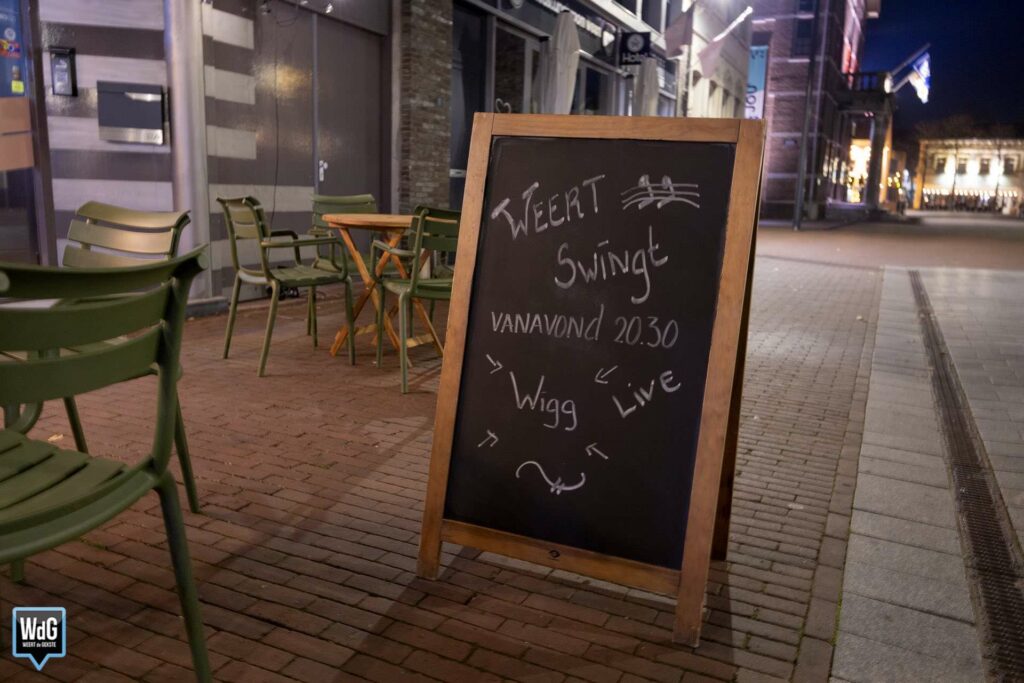 WEERT
Swingt
VANAVOND 20.30
Wigg LIVE
WdG
WEERT de GEKSTE